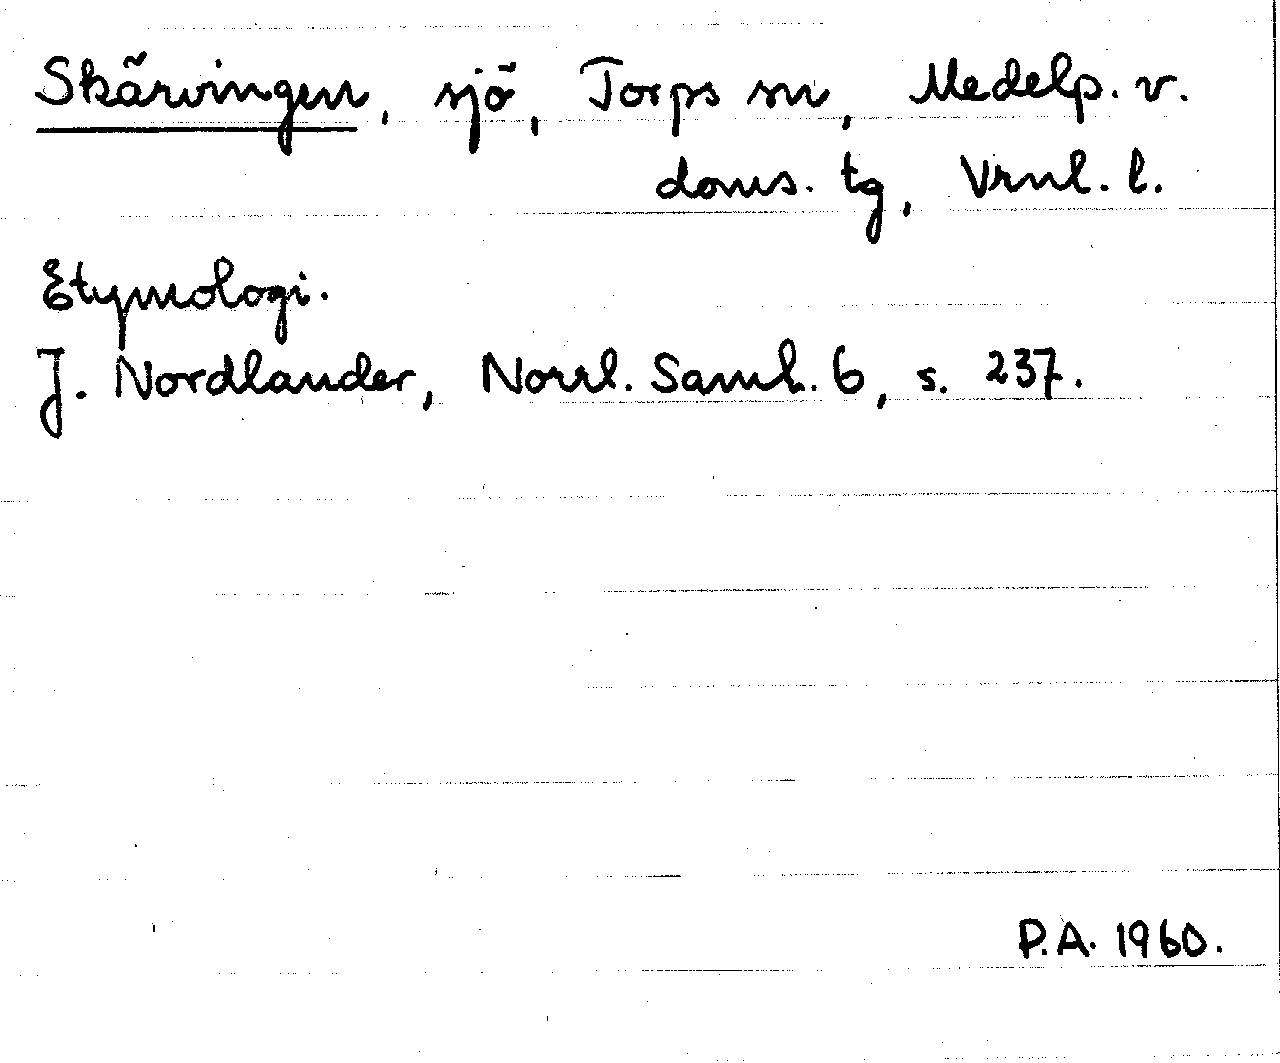 Skärvingen, sjö, Torps sn, Medelp. v.
doms. tg, Vrnl. l.
Etymologi.
J. Nordlander, Norrl. Saml. 6, s. 237.
P.A. 1960.